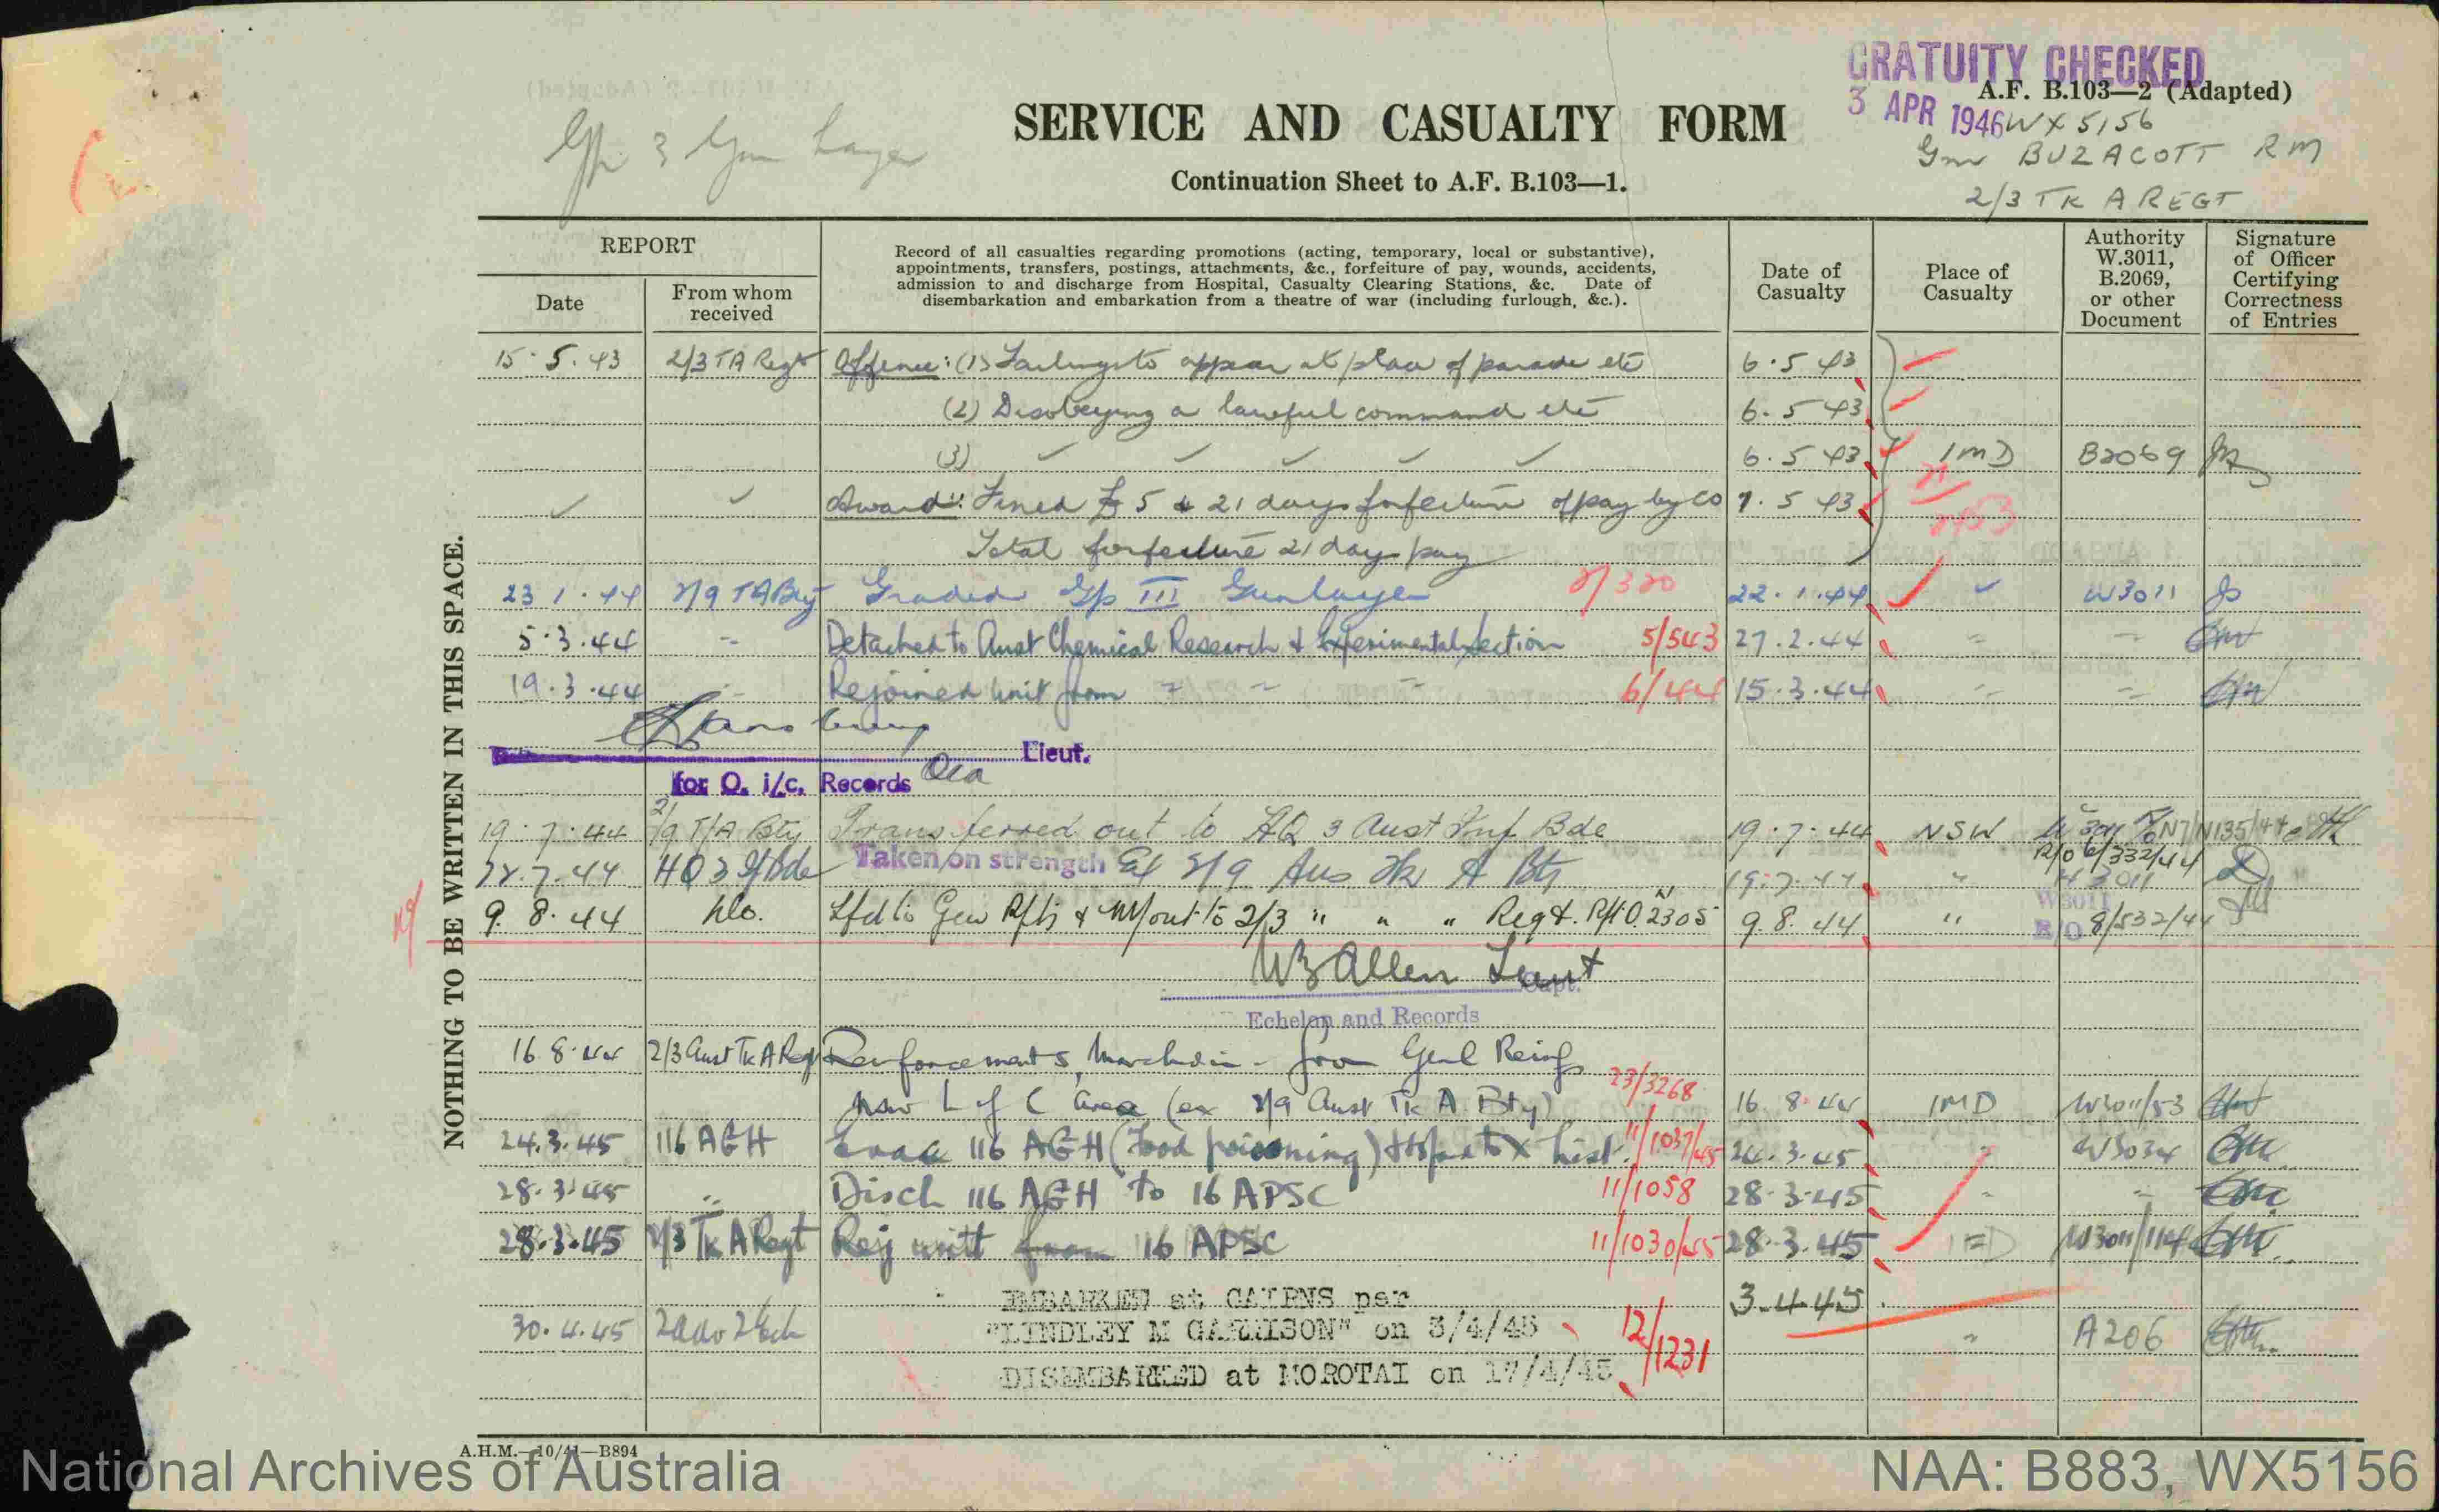 GRATUITY CHECKED
3 APR 1946
A.F. B.103—2 (Adapted)
WX5156
Gnr BUZACOTT RM
2/3 TK A REGT
Gp 3 Gun Layer
SERVICE AND CASUALTY FORM
Continuation Sheet to A.F. B.103—1.
REPORT
Date
From whom received
Record of all casualties regarding promotions (acting, temporary, local or substantive),
appointments, transfers, postings, attachments, &c., forfeiture of pay, wounds, accidents,
admission to and discharge from Hospital, Casualty Clearing Stations, &c. Date of
disembarkation and embarkation from a theatre of war (including furlough, &c.).
Date of Casualty
Place of Casualty
Authority W.3011, B.2069, or other Document
Signature of Officer Certifying Correctness of Entries
NOTHING TO BE WRITTEN IN THIS SPACE.
15.5.43 2/3 TA Regt Offence: (1) Failing to appear at place of parade etc 6.5.43
(2) Disobeying a lawful command etc 6.5.43
(3) 6.5.43 IMD B2069
Award: Fined £5 & 21 days forfeiture of pay by CO 7.5.43
Total forfeiture 21 days pay
23.1.44 2/9 TA Bty Graded Gp III Gunlayer 22.1.44 W3011
5.3.44 Detached to Aust Chemical Research & Experimental Section 5/543 27.2.44
19.3.44 Rejoined unit from 6/44 15.3.44
Lieut.
for O. i/c. Records
19.7.44 2/9 T/A Bty Transferred out to HQ 3 Aust Inf Bde 19.7.44 NSW
22.7.44 HQ 3 Inf Bde Taken on strength Ex 2/9 Aus Tk A Bty 19.7.44 " R/O 6/332/44 W3011
9.8.44 do. Tfd to Gen Rfts & M/out to 2/3 " " " Regt. 2305 9.8.44 " W3011 R/O 8/532/44
WB Allen Lieut
Capt.
Echelon and Records
16.8.44 2/3 Aust Tk A Regt Reinforcements, marched in - from Genl Reinfs 23/3268
NSW L of C Area (ex 2/9 Aust Tk A Bty) 16.8.44 IMD W3011/53
24.3.45 116 AGH Evac 116 AGH (Food poisoning) X List 11/1037/45 24.3.45 W3034
28.3.45 " Disch 116 AGH to 16 APSC 11/1058 28.3.45
28.3.45 2/3 Tk A Regt Rej unit from 16 APSC 11/1030/45 28.3.45 W3011/114
EMBARKED at CAIRNS per 3.4.45
30.4.45 "LINDLEY M GARRISON" on 3/4/45 12/1231 A206
DISEMBARKED at MOROTAI on 17/4/45
A.H.M.—10/41—B894
National Archives of Australia
NAA: B883, WX5156